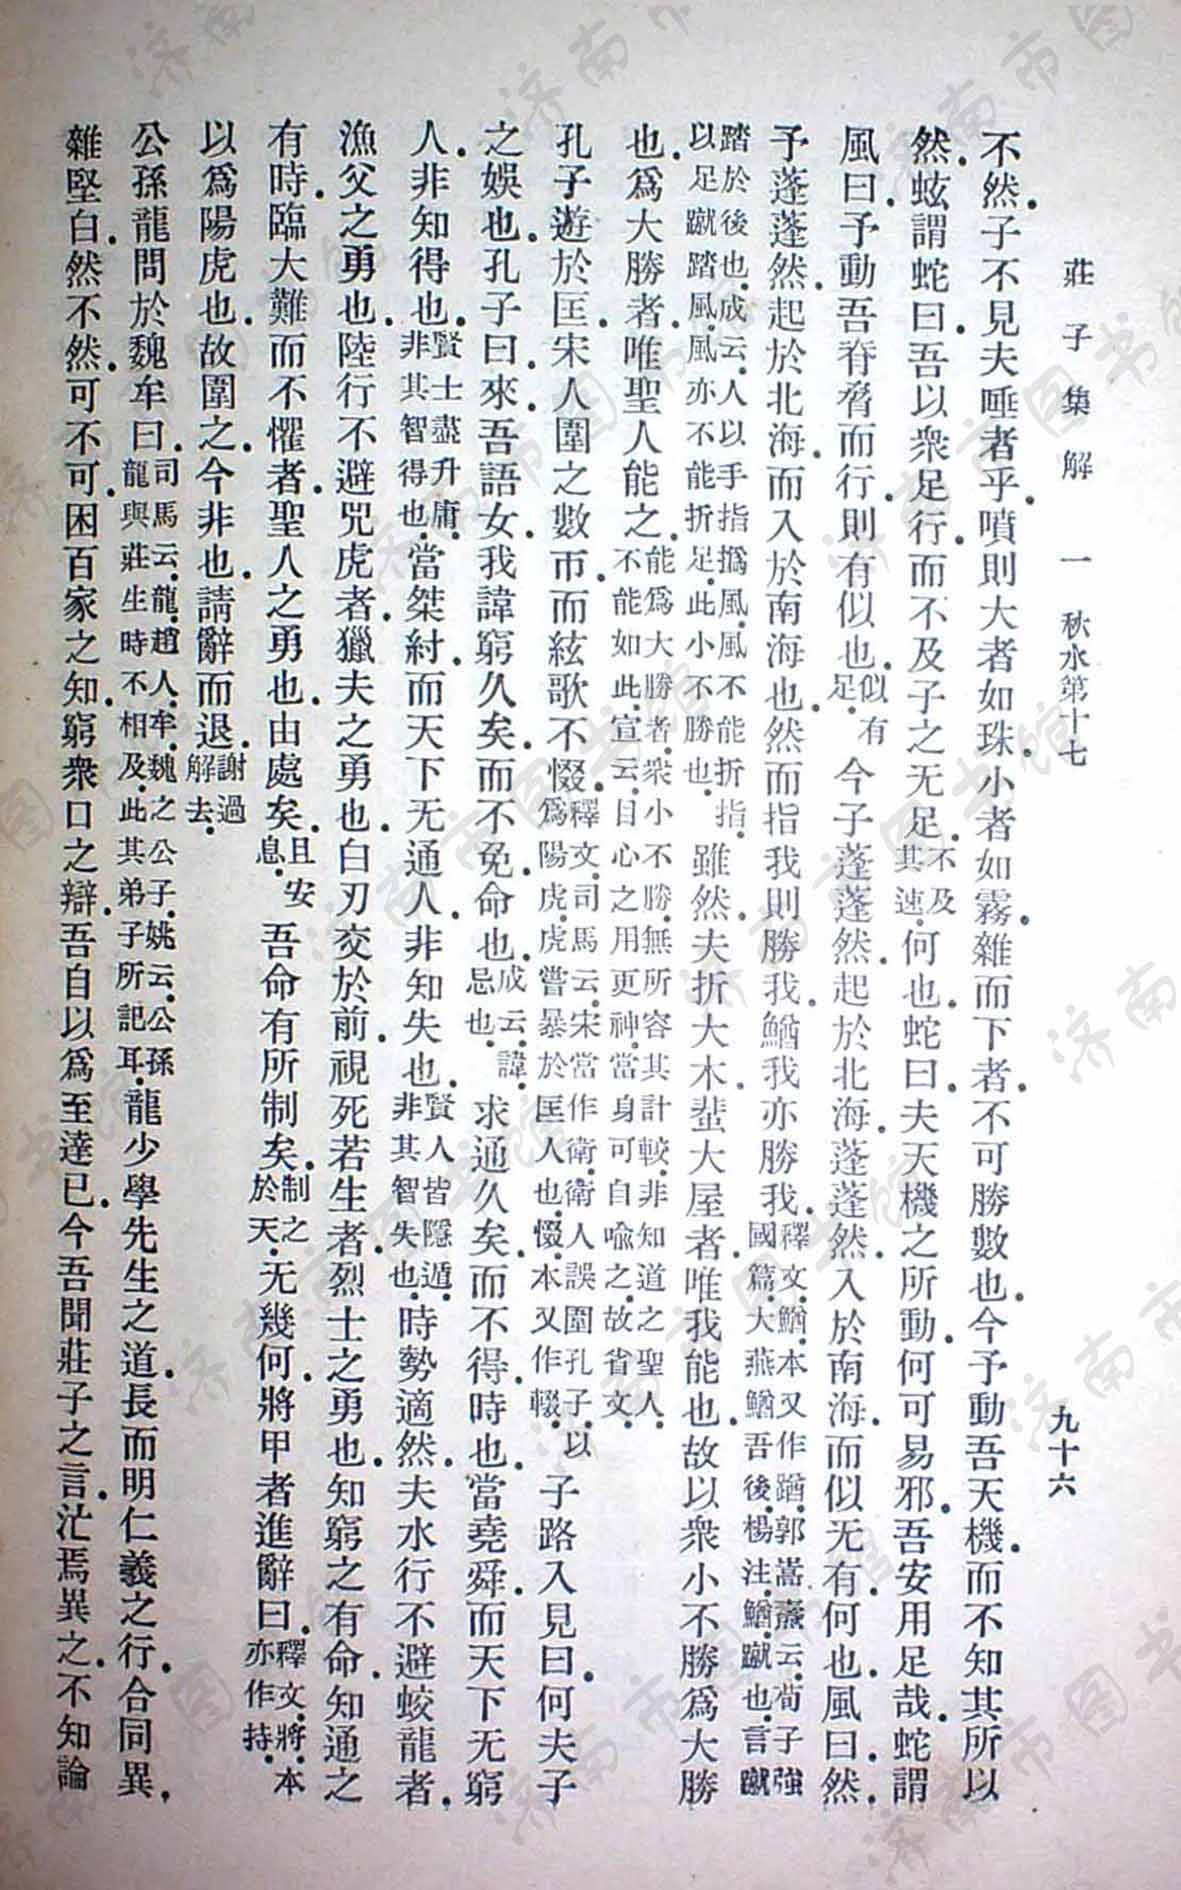 莊子集解 一 秋水第十七 九十六
不然.子不見夫唾者乎.噴則大者如珠.小者如霧.雜而下者.不可勝數也.今予動吾天機.而不知其所以
然.蚿謂蛇曰.吾以衆足行.而不及子之无足.不及其速.何也.蛇曰.夫天機之所動.何可易邪.吾安用足哉.蛇謂
風曰.予動吾脊脅而行.則有似也.似有足.今子蓬蓬然.起於北海.蓬蓬然.入於南海.而似无有.何也.風曰.然.
予蓬蓬然.起於北海.而入於南海也.然而指我則勝我.鰌我亦勝我.釋文.鰌.本又作蹭.郭嵩燾云.荀子強國篇.大燕鰌吾後.楊注.鰌.蹴也.言蹴
踏於後也.成云.人以手指撝風.風不能折指.以足蹴踏風.風亦不能折足.此小不勝也.雖然.夫折大木.蜚大屋者.唯我能也.故以衆小不勝爲大勝
也.爲大勝者.唯聖人能之.能爲大勝者.衆小不勝.無所容其計較.非知道之聖人不能如此.宣云.目心之用更神.當身可自喻之.故省文.
孔子遊於匡.宋人圍之數帀.而絃歌不惙.釋文.司馬云.宋當作衛.衛人誤圍孔子.以爲陽虎.虎嘗暴於匡人也.惙.本又作輟.子路入見曰.何夫子
之娛也.孔子曰.來.吾語女.我諱窮久矣.而不免.命也.成云.諱.忌也.求通久矣.而不得.時也.當堯舜.而天下无窮
人.非知得也.賢士盡升庸.非其智得也.當桀紂.而天下无通人.非知失也.賢人皆隱遁.非其智失也.時勢適然.夫水行不避蛟龍者.
漁父之勇也.陸行不避兕虎者.獵夫之勇也.白刃交於前.視死若生者.烈士之勇也.知窮之有命.知通之
有時.臨大難而不懼者.聖人之勇也.由處矣.且安息.吾命有所制矣.制之於天.无幾何.將甲者進辭曰.釋文.將.本亦作持.
以爲陽虎也.故圍之.今非也.請辭而退.謝過解去.
公孫龍問於魏牟曰.司馬云.龍.趙人.牟.魏之公子.姚云.公孫龍與莊生時不相及.此其弟子所記耳.龍少學先生之道.長而明仁義之行.合同異.
離堅白.然不然.可不可.困百家之知.窮衆口之辯.吾自以爲至達已.今吾聞莊子之言.汒焉異之.不知論
济南市图书馆